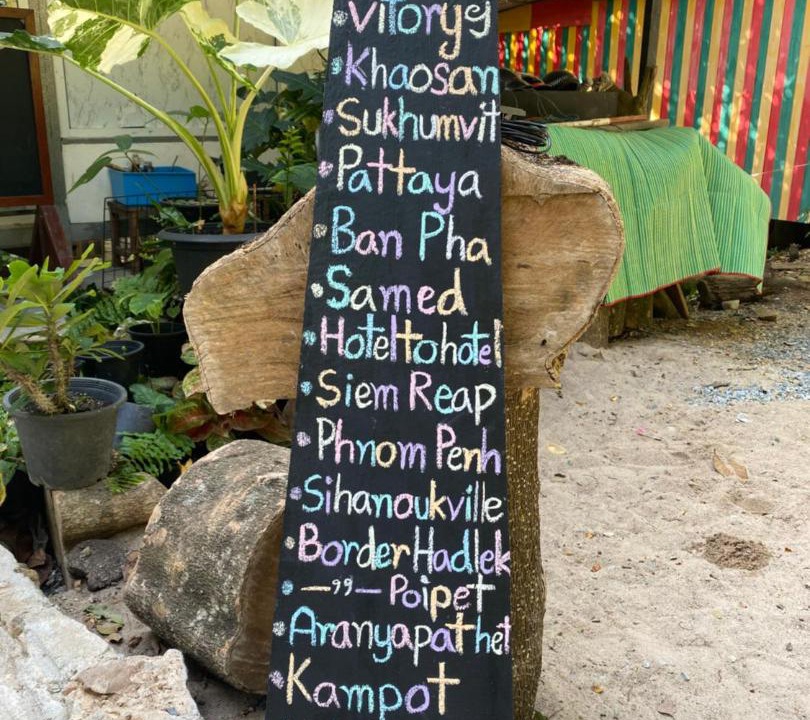 • Vitoryej
• Khaosan
• Sukhumvit
• Pattaya
• Ban Pha
• Samed
• Hoteltohotel
• Siem Reap
• Phnom Penh
• Sihanoukville
• Border Hadlek
• —99— Poipet
• Aranyapathet
• Kampot